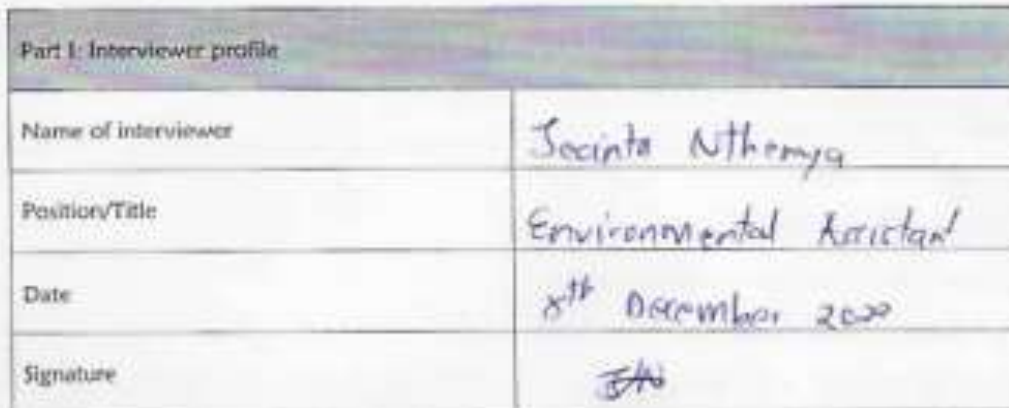 Part I: Interviewer profile
Name of interviewer Jecinta
Position/Title Environmental Assistant
Date 8th December 2020
Signature